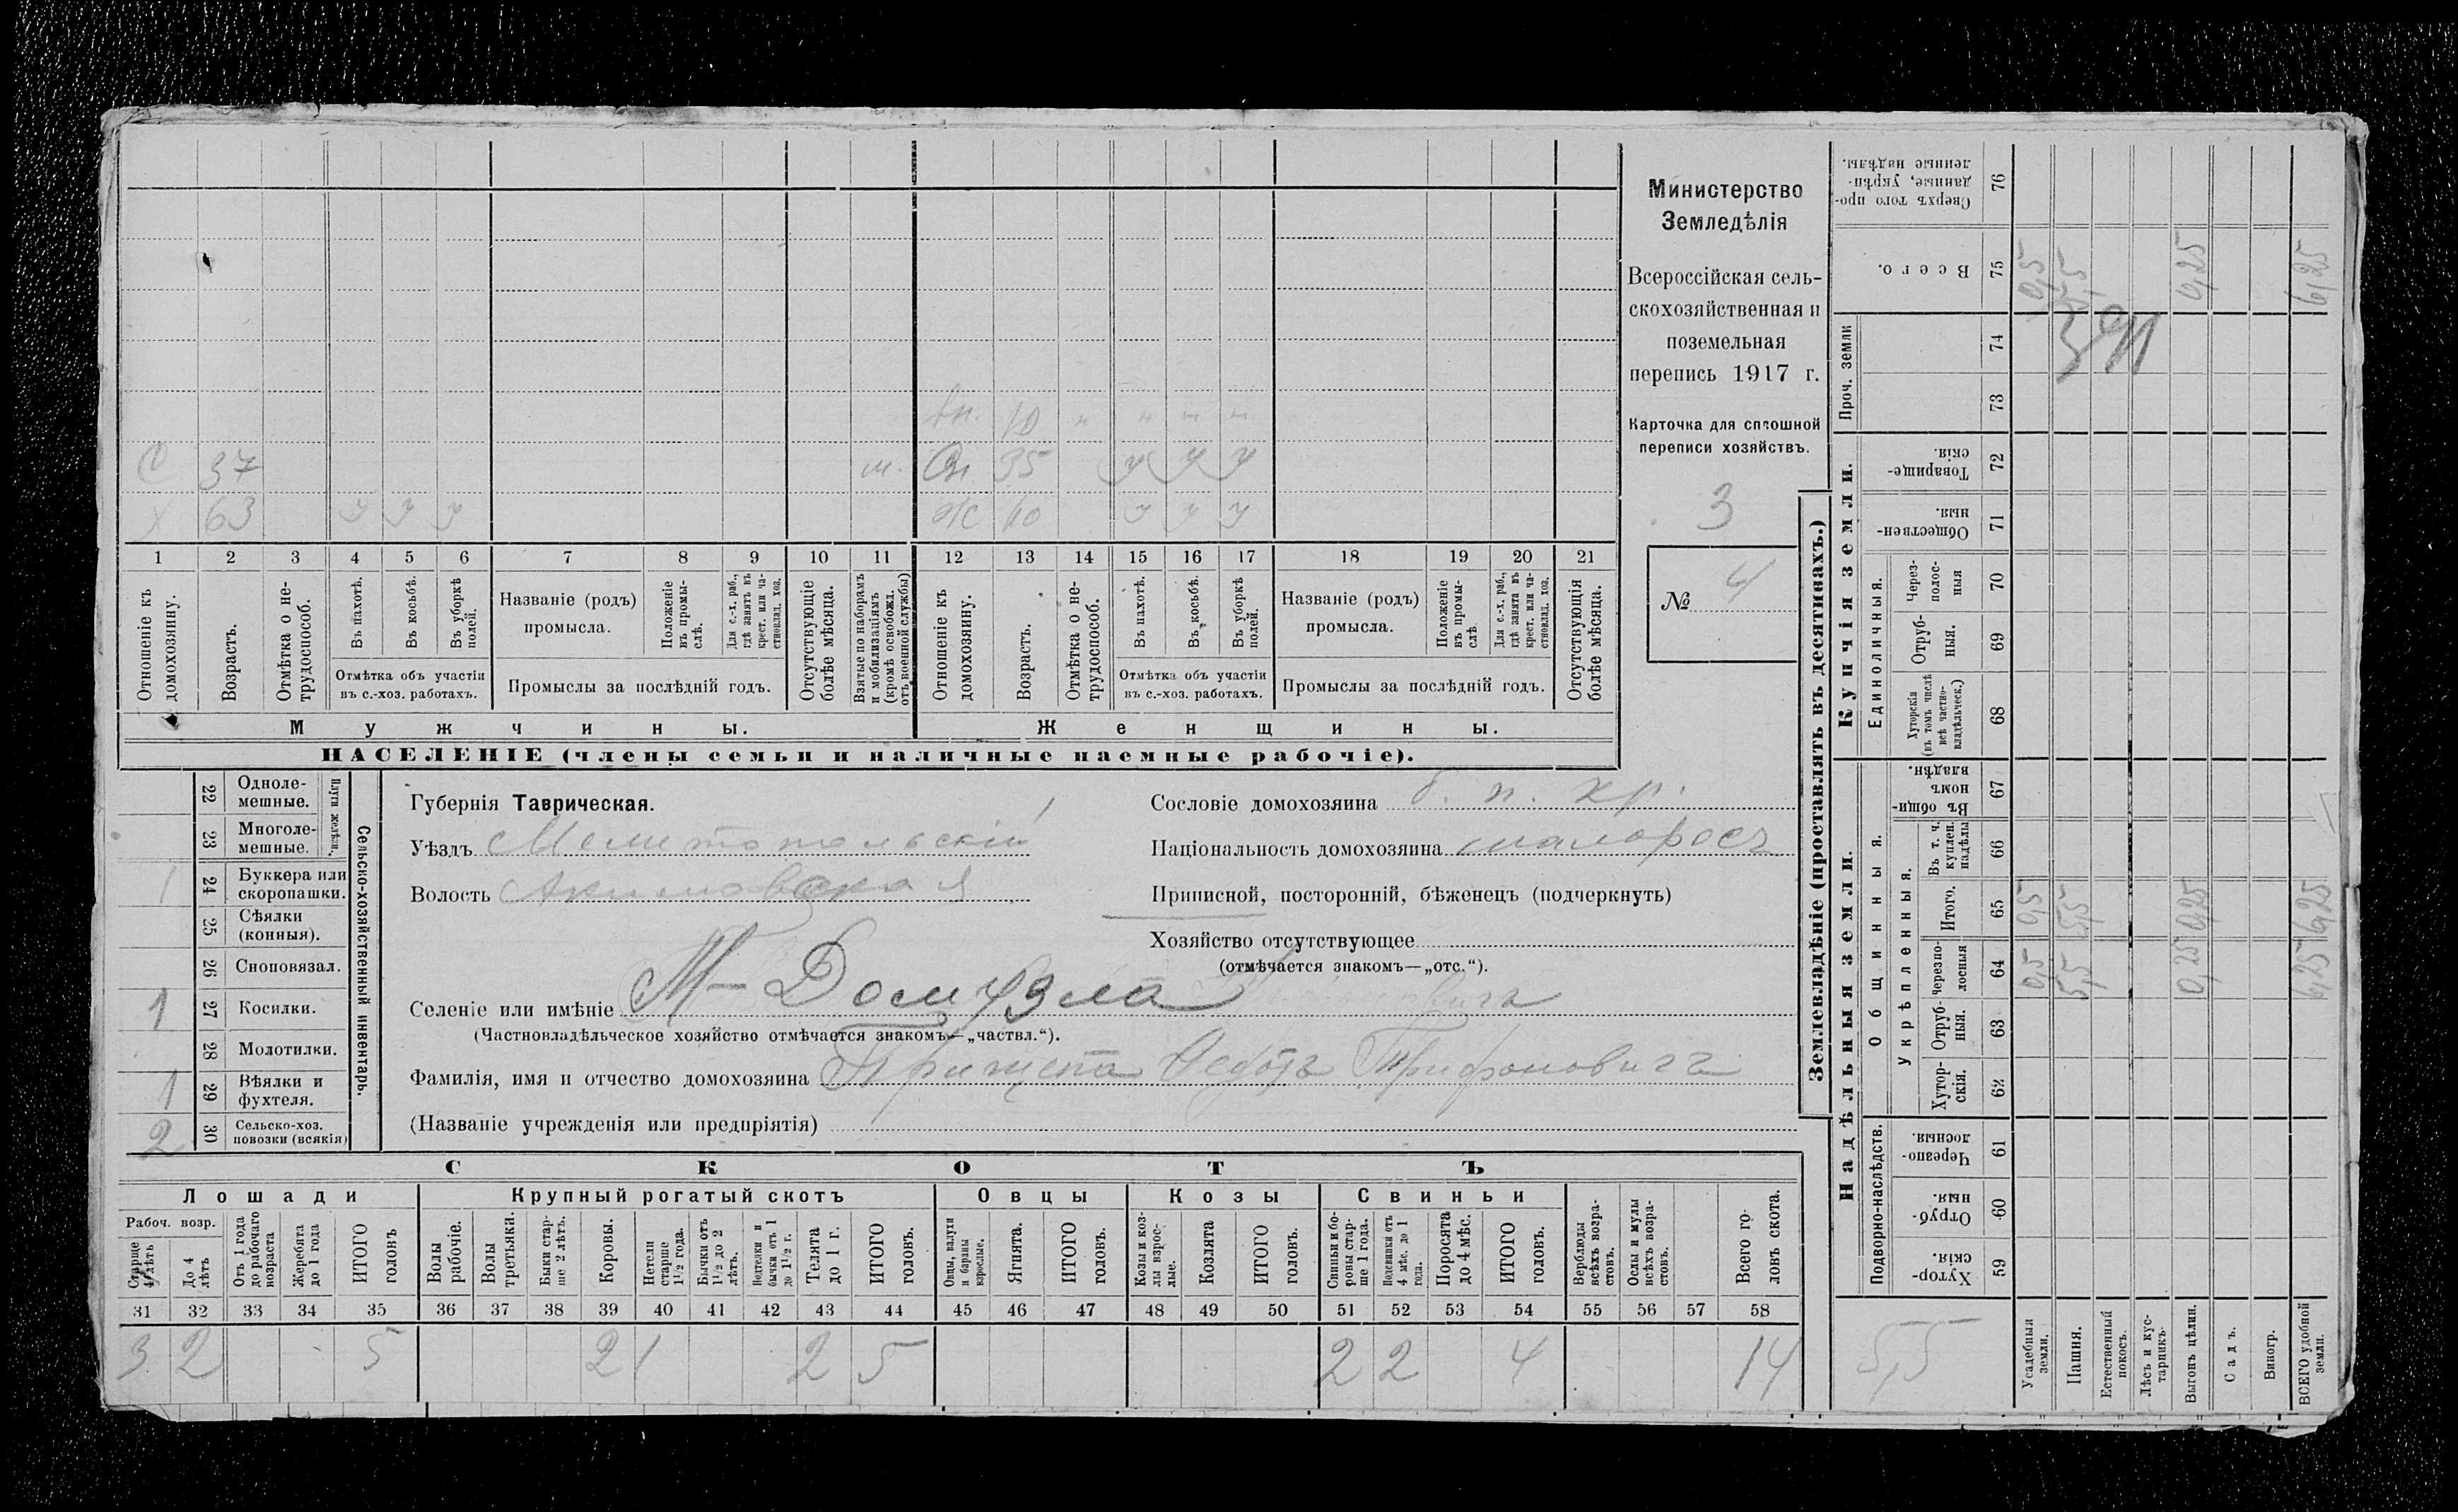 Министерство
Земледѣлія
Всероссійская сель-
скохозяйственная и
поземельная
перепись 1917 г.
Карточка для сплошной
переписи хозяйствъ.
3
№ 4
С 37 м. Сн 35 у у у
Х 63 у у у Ж 60 у у у
1 2 3 4 5 6 7 8 9 10 11 12 13 14 15 16 17 18 19 20 21
Отношеніе къ домохозяину.
Возрастъ.
Отмѣтка о не-
трудоспособ.
Въ пахотѣ.
Въ косьбѣ.
Въ уборкѣ полей.
Отмѣтка объ участіи
въ с.-хоз. работахъ.
Названіе (родъ)
промысла.
Положеніе въ промы-
слѣ.
Для с.-х. раб., гдѣ занятъ въ крест. или ча-
стновлад. хоз.
Промыслы за послѣдній годъ.
Отсутствующіе болѣе мѣсяца.
Взятые по наборамъ и мобилизаціямъ (кромѣ освобожд. отъ военной службы)
Отношеніе къ домохозяину.
Возрастъ.
Отмѣтка о не-
трудоспособ.
Въ пахотѣ.
Въ косьбѣ.
Въ уборкѣ полей.
Отмѣтка объ участіи
въ с.-хоз. работахъ.
Названіе (родъ)
промысла.
Положеніе въ промы-
слѣ.
Для с.-х. раб., гдѣ занята въ крест. или ча-
стновлад. хоз.
Промыслы за послѣдній годъ.
Отсутствующія болѣе мѣсяца.
Мужчины.
Женщины.
НАСЕЛЕНІЕ (члены семьи и наличные наемные рабочіе).
22 Одноле-
мешные.
23 Многоле-
мешные.
Плуги желѣзн.
1 24 Буккера или
скоропашки.
25 Сѣялки
(конныя).
26 Сноповязал.
1 27 Косилки.
28 Молотилки.
1 29 Вѣялки и
фухтеля.
2 30 Сельско-хоз.
повозки (всякія)
Сельско-хозяйственный инвентарь.
Губернія Таврическая.
Уѣздъ Мелитопольскій
Волость Акимовская
Сословіе домохозяина б. п. кр.
Національность домохозяина малороссъ
Приписной, посторонній, бѣженецъ (подчеркнуть)
Хозяйство отсутствующее
(отмѣчается знакомъ—„отс.“).
Селеніе или имѣніе М- Домузла
(Частновладѣльческое хозяйство отмѣчается знакомъ—„частвл.“).
Фамилія, имя и отчество домохозяина Трифоновичъ
(Названіе учрежденія или предпріятія)
СКОТЪ
Лошади
Крупный рогатый скотъ
Овцы
Козы
Свиньи
Рабоч. возр.
Старше 4 лѣтъ
До 4 лѣтъ
Отъ 1 года до рабочаго возраста
Жеребята до 1 года
ИТОГО головъ
Волы рабочіе.
Волы третьяки.
Быки стар-
ше 2 лѣтъ.
Коровы.
Нетели старше 1½ года.
Бычки отъ 1½ до 2 лѣтъ.
Подтелки и бычки отъ 1 до 1½ г.
Телята до 1 г.
ИТОГО головъ.
Овцы, валухи и бараны взрослые.
Ягнята.
ИТОГО головъ.
Козы и коз-
лы взрос-
лые.
Козлята
ИТОГО головъ.
Свиньи и бо-
ровы стар-
ше 1 года.
Подсвинки отъ 4 мѣс. до 1 года.
Поросята до 4 мѣс.
ИТОГО головъ.
Верблюды всѣхъ возра-
стовъ.
Ослы и мулы всѣхъ возра-
стовъ.
Всего го-
ловъ скота.
31 32 33 34 35 36 37 38 39 40 41 42 43 44 45 46 47 48 49 50 51 52 53 54 55 56 57 58
3 2 5 2 1 2 5 2 2 4 14
Землевладѣніе (проставлять въ десятинахъ.)
Купчія земли.
Надѣльныя земли.
Сверхъ того про-
данные, укрѣп-
ленные надѣлы.
76
Всего.
75 0,5 5,5 0,25 6,25
Проч. земли
74
73
Товарище-
скія.
72
Обществен-
ныя.
71
Единоличныя.
Через-
полос-
ныя
70
Отруб-
ныя.
69
Хуторскія
(въ томъ числѣ
всѣ частно-
владѣльческ.)
68
Общинныя.
Въ общин-
номъ
владѣн.
67
Укрѣпленныя.
Въ т. ч.
куплен.
надѣлы
66
Итого.
65 0,5 5,5 0,25 6,25
Черезпо-
лосныя
64 0,5 5,5 0,25 6,25
Отруб-
ныя.
63
Хутор-
скія.
62
Подворно-наслѣдств.
Черезпо-
лосныя.
61
Отруб-
ныя.
60
Хутор-
скія.
59
5,5
Усадебныя земли.
Пашня.
Естественный покосъ.
Лѣсъ и кус-
тарникъ.
Выгонъ цѣлин.
Садъ.
Виногр.
ВСЕГО удобной земли.